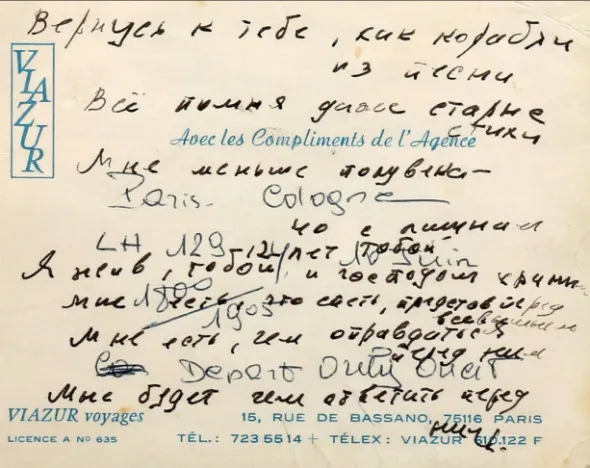 Вернусь к тебе, как корабли
из песни
VIAZUR
Всё помня даже старые
стихи
Avec les Compliments de l'Agence
Мне меньше полувека –
Paris - Cologne
но с лишним
LH 129 - 12/ лет тобой 10 Juin
Я жив, тобой и господом храним
1800
Мне есть, что спеть, представ перед
всевышним
1905
Мне есть, чем оправдаться
перед ним
Depart Orly Ouest
Мне будет чем ответить перед
ним.
VIAZUR voyages
LICENCE A Nº 635
15, RUE DE BASSANO, 75116 PARIS
TÉL.: 723 55 14 + TÉLEX: VIAZUR 610.122 F